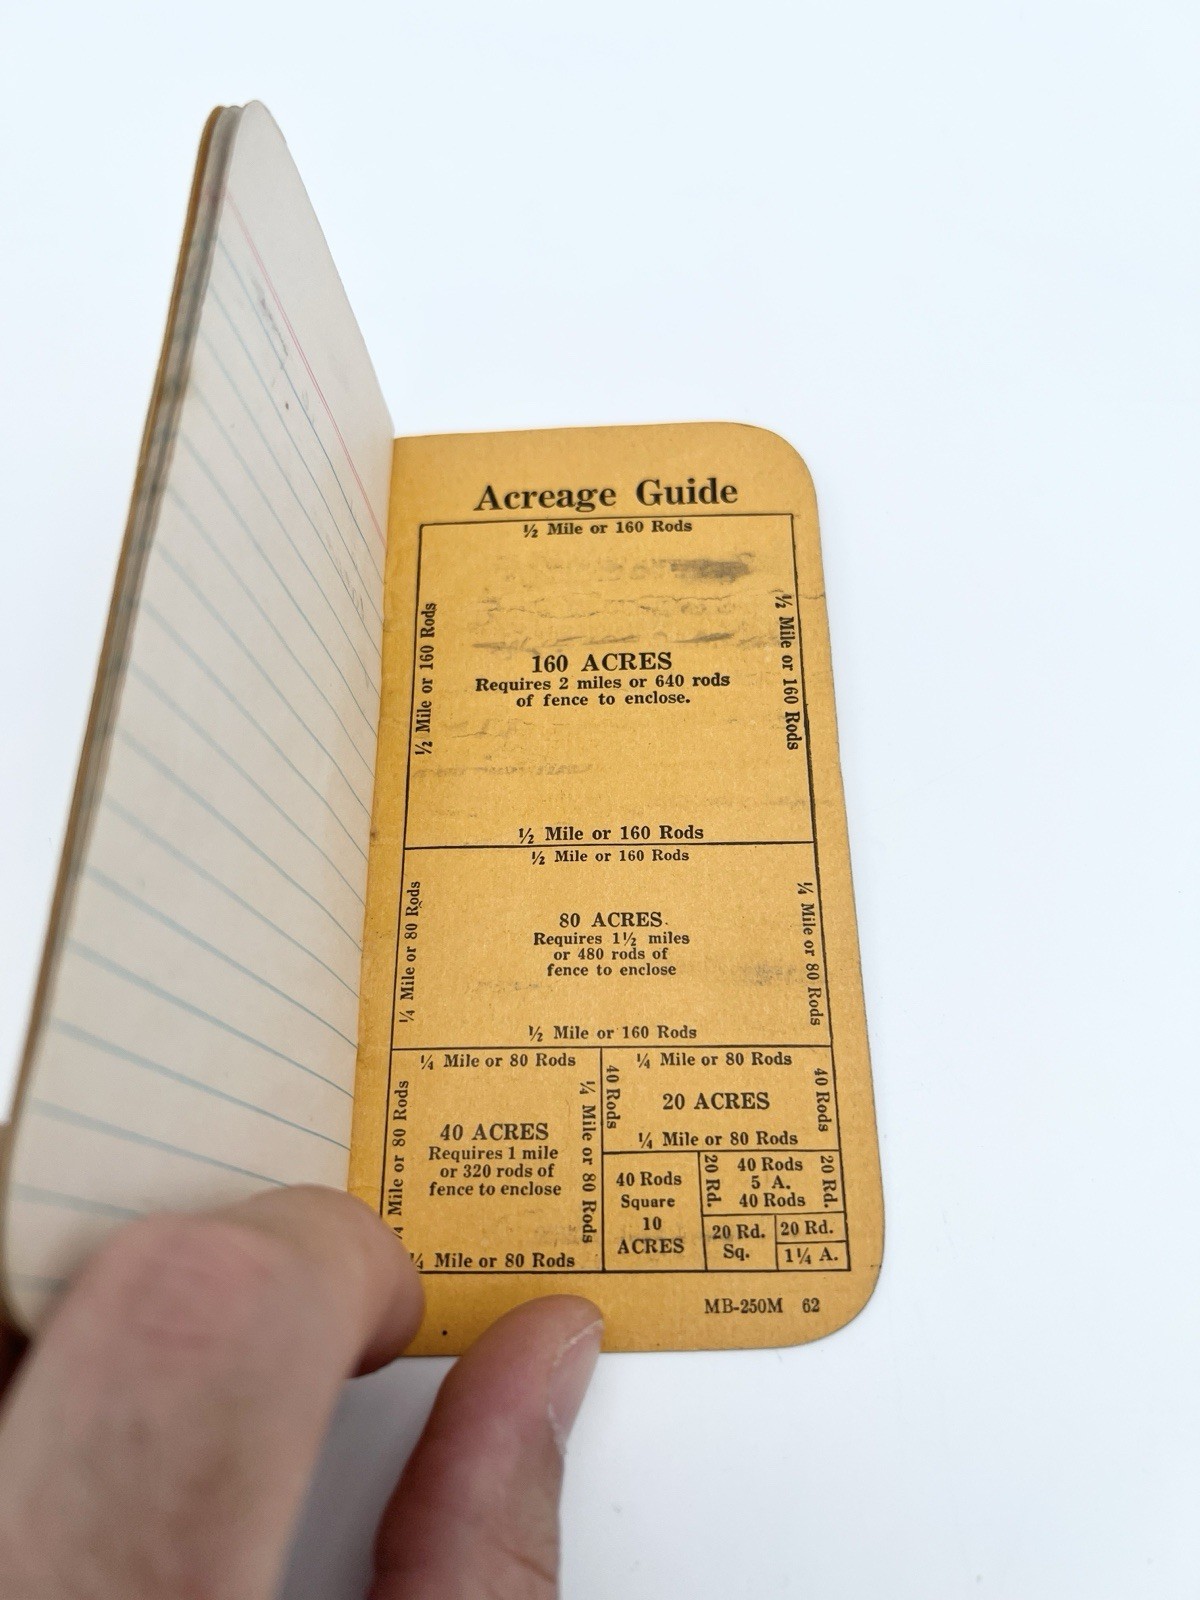 Acreage Guide
½ Mile or 160 Rods
½ Mile or 160 Rods
½ Mile or 160 Rods
160 ACRES
Requires 2 miles or 640 rods
of fence to enclose.
½ Mile or 160 Rods
½ Mile or 160 Rods
¼ Mile or 80 Rods
¼ Mile or 80 Rods
80 ACRES.
Requires 1½ miles
or 480 rods of
fence to enclose
½ Mile or 160 Rods
¼ Mile or 80 Rods
¼ Mile or 80 Rods
¼ Mile or 80 Rods
40 ACRES
Requires 1 mile
or 320 rods of
fence to enclose
¼ Mile or 80 Rods
¼ Mile or 80 Rods
40 Rods
40 Rods
20 ACRES
¼ Mile or 80 Rods
40 Rods
Square
10
ACRES
20 Rd.
40 Rods
5 A.
40 Rods
20 Rd.
20 Rd.
Sq.
20 Rd.
1¼ A.
MB-250M 62